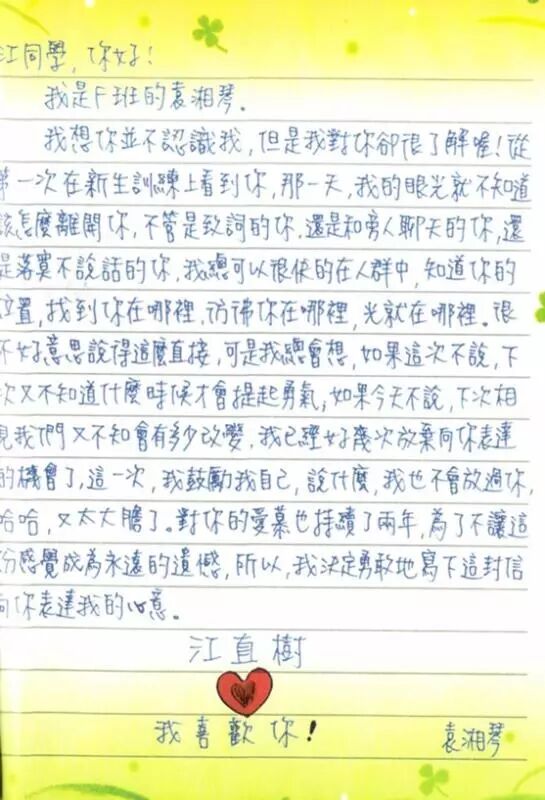 江同學,你好!
我是F班的袁湘琴。
我想你並不認識我,但是我對你卻很了解喔!從
第一次在新生訓練上看到你,那一天,我的眼光就不知道
該怎麼離開你,不管是致詞的你,還是和旁人聊天的你,還
是落寞不說話的你,我總可以很快的在人群中,知道你的
位置,找到你在哪裡,彷彿你在哪裡,光就在哪裡。很
不好意思說得這麼直接,可是我總會想,如果這次不說,下
次又不知道什麼時候才會提起勇氣;如果今天不說,下次相
見我們又不知會有多少改變,我已經好幾次放棄向你表達
的機會了,這一次,我鼓勵我自己,說什麼,我也不會放過你,
哈哈,又太大膽了。對你的愛慕也持續了兩年,為了不讓這
份感覺成為永遠的遺憾,所以,我決定勇敢地寫下這封信
向你表達我的心意。
江直樹
我喜歡你!
袁湘琴